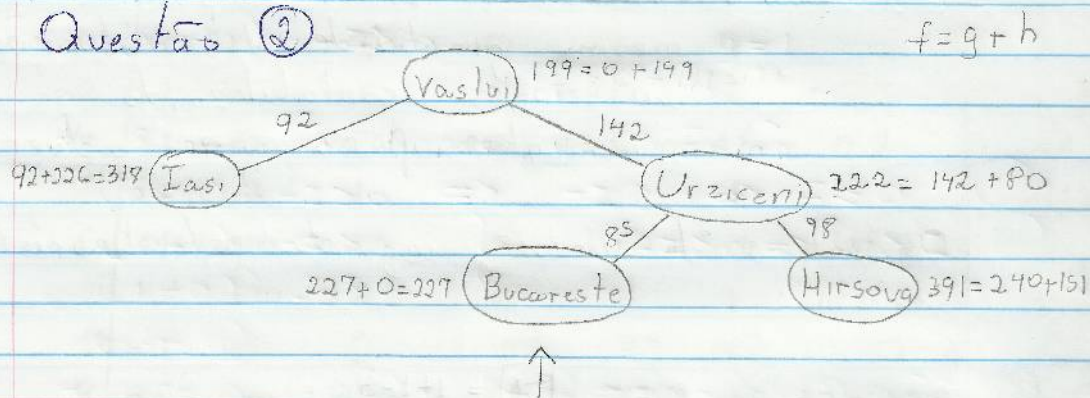 Questão 2
f = g + h
Vaslui 199 = 0 + 199
92
142
92+226=318 Iasi
Urziceni 222 = 142 + 80
85
98
227+0=227 Bucareste
Hirsova 391 = 240+151